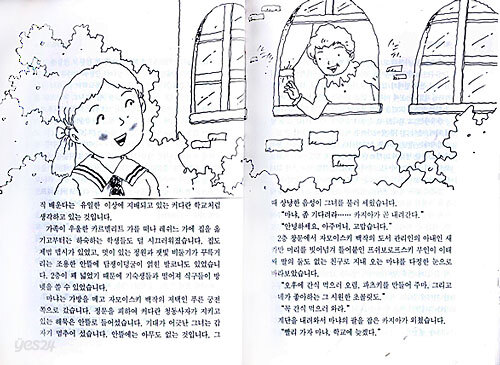 직 배운다는 유일한 이상에 지배되고 있는 커다란 학교처럼
생각하고 있는 것입니다.
가족이 우울한 카르멜리트 가를 떠나 레리느 가에 집을 옮
기고부터는 하숙하는 학생들도 덜 시끄러워졌습니다. 집도
제법 멉시가 있었고, 멋이 있는 정원과 잿빛 비둘기가 무득기
리는 조용한 안뜰에 담쟁이덩굴이 얽힌 발코니도 있었습니
다. 2층이 꽤 넓었기 때문에 기숙생들과 떨어져 식구들이 방
넷을 쓸 수 있었습니다.
마냐는 가방을 메고 자모이스키 백작의 저택인 푸른 궁전
쪽으로 갔습니다. 정문을 피하여 커다란 청동사자가 지키고
있는 해묵은 안뜰로 들어섰습니다. 기대가 어긋난 그녀는 갑
자기 멈추어 섰습니다. 안뜰에는 아무도 없는 것입니다. 그
때 상냥한 음성이 그녀를 불러 세웠습니다.
"마냐, 좀 기다려라…… 카지아가 곧 내려간다."
"안녕하세요, 아주머니, 고맙습니다."
2층 창문에서 자모이스키 백작의 도서 관리인의 아내인
머리를 부인이 이태
딸의 둘도 없는 친구로 지내 오는 마냐를 다정한 눈으로
바라보았습니다.
"오후에 간식 먹으러 오렴. 파츠키를 만들어 주마, 그리고
네가 좋아하는 그 시원한 초콜릿도."
"꼭 간식 먹으러 와라."
계단을 내려와서 마냐의 팔을 잡은 카지아가 외쳤습니다.
"빨리 가자 마냐, 학교에 늦겠다."
yes24